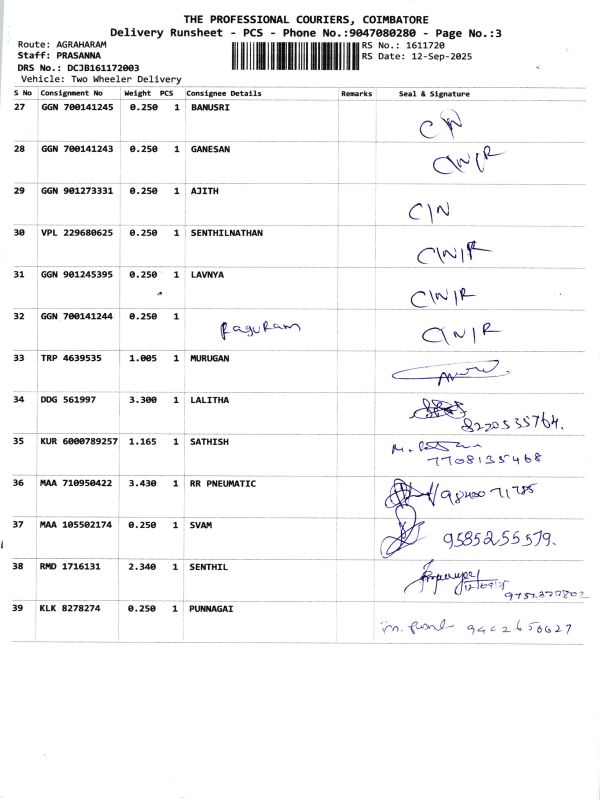 THE PROFESSIONAL COURIERS, COIMBATORE
Delivery Runsheet - PCS - Phone No.:9047080280 - Page No.:3
Route: AGRAHARAM RS No.: 1611720
Staff: PRASANNA RS Date: 12-Sep-2025
DRS No.: DCJB161172003
Vehicle: Two Wheeler Delivery
S No Consignment No Weight PCS Consignee Details Remarks Seal & Signature
27 GGN 700141245 0.250 1 BANUSRI C/N
28 GGN 700141243 0.250 1 GANESAN C/N/R
29 GGN 901273331 0.250 1 AJITH C/N
30 VPL 229680625 0.250 1 SENTHILNATHAN C/N/R
31 GGN 901245395 0.250 1 LAVNYA C/N/R
32 GGN 700141244 0.250 1 Raguram C/N/R
33 TRP 4639535 1.005 1 MURUGAN
34 DDG 561997 3.300 1 LALITHA
8220535764.
35 KUR 6000789257 1.165 1 SATHISH
7708135468
36 MAA 710950422 3.430 1 RR PNEUMATIC
37 MAA 105502174 0.250 1 SVAM 9585255579.
38 RMD 1716131 2.340 1 SENTHIL
39 KLK 8278274 0.250 1 PUNNAGAI